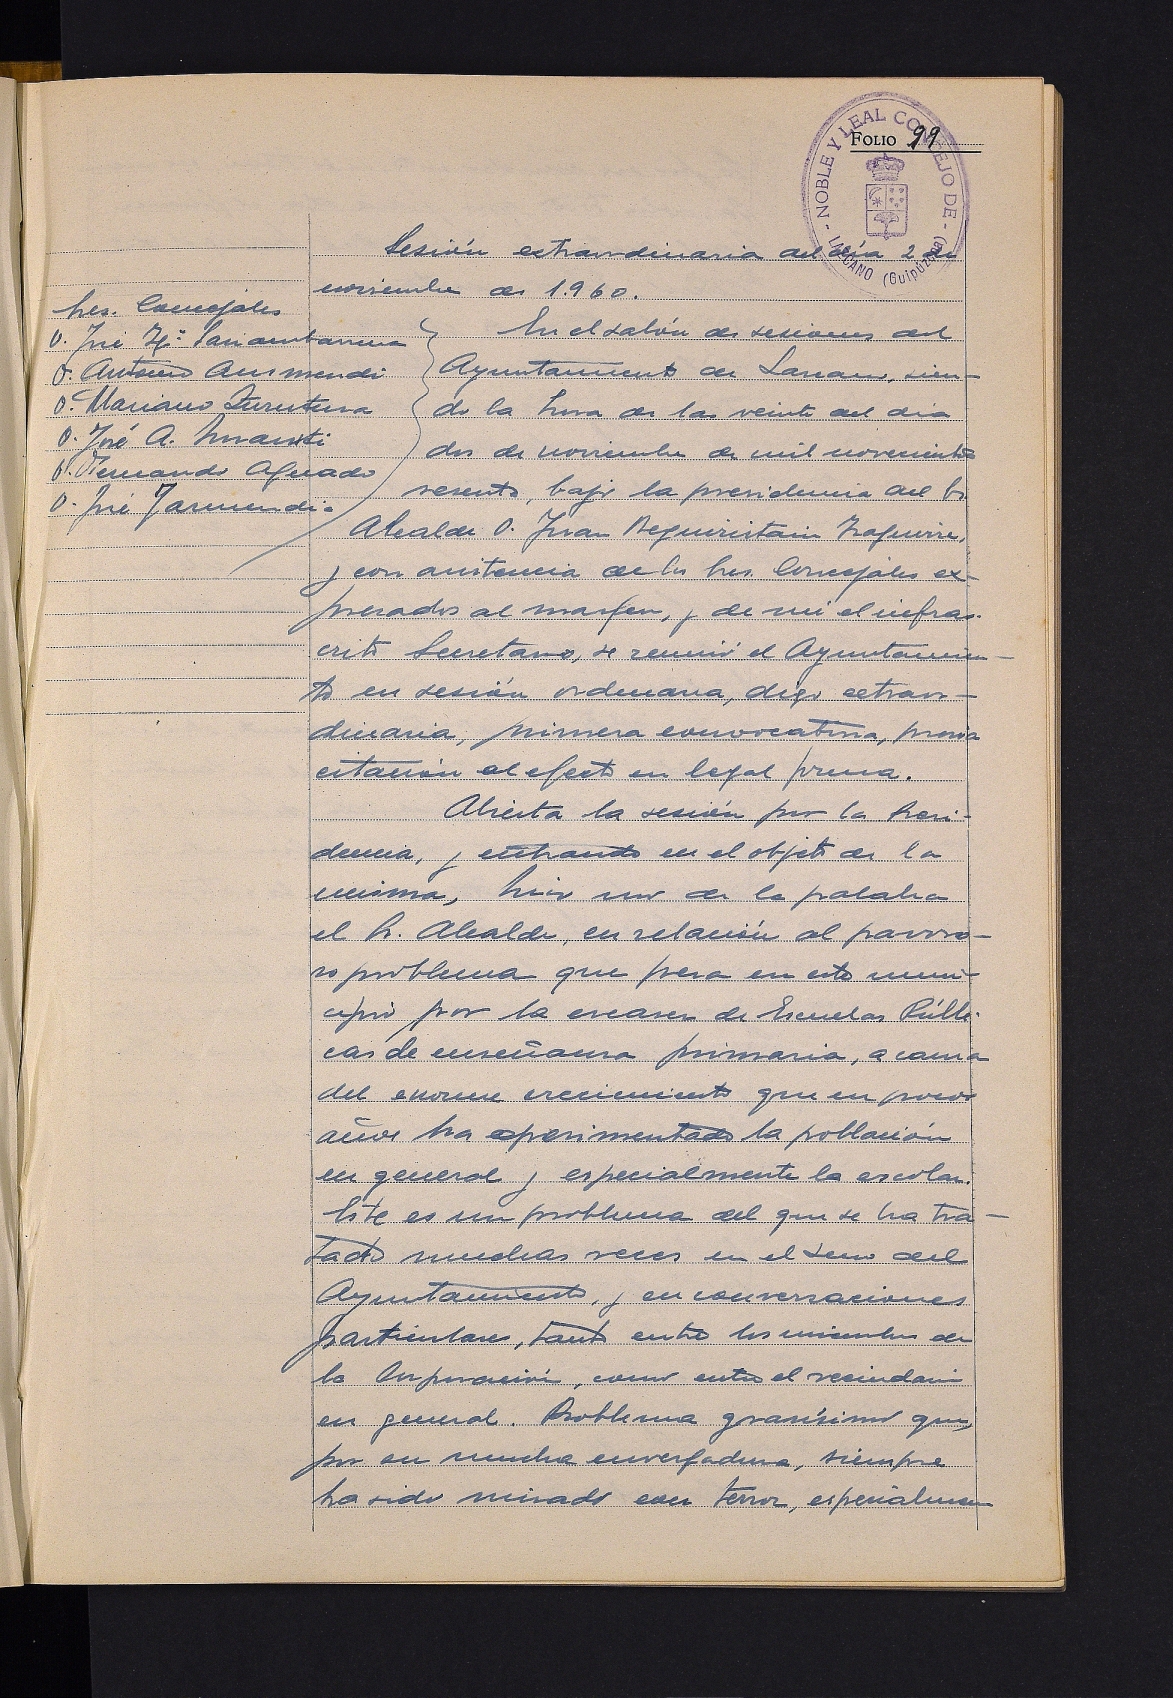 FOLIO 99
NOBLE Y LEAL CONCEJO DE
LAZCANO (Guipúzcoa)
Sesión extraordinaria del día 2 de
noviembre de 1.960.
Sres. Concejales
D. José Mª
D. Antonio Aurmendi
D. Mariano
D. José A. Imaz
D. Fernando Aguado
D. José Garmendia
En el salón de sesiones del
Ayuntamiento de Lazcano, sien-
do la hora de las veinte del día
dos de noviembre de mil novecientos
sesenta, bajo la presidencia del Sr.
Alcalde D. Juan Beguiristain Izaguirre,
y con asistencia de los Sres. Concejales ex-
presados al margen, y de mí el infras-
crito Secretario, se reunió el Ayuntamien-
to en sesión ordinaria, digo extraor-
dinaria, primera convocatoria, previa
citación al efecto en legal forma.
Abierta la sesión por la Presi-
dencia, y entrando en el objeto de la
misma, hizo uso de la palabra
el Sr. Alcalde, en relación al pavoro-
so problema que pesa en este muni-
cipio por la escasez de Escuelas Públi-
cas de enseñanza primaria, a causa
del enorme crecimiento que en pocos
años ha experimentado la población
en general y especialmente la escolar.
Este es un problema del que se ha tra-
tado muchas veces en el seno del
Ayuntamiento, y en conversaciones
particulares, tanto entre los miembros de
la Corporación, como entre el vecindario
en general. Problema gravísimo que,
por su mucha envergadura, siempre
ha sido mirado con terror, especialmen